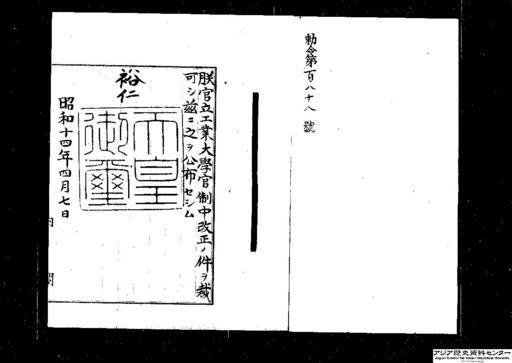 勅令第百八十八號
朕官立工業大學官制中改正ノ件ヲ裁
可シ茲ニ之ヲ公布セシム
裕仁
天皇
御璽
昭和十四年四月七日
内閣
アジア歴史資料センター
Japan Center for Asian Historical Records